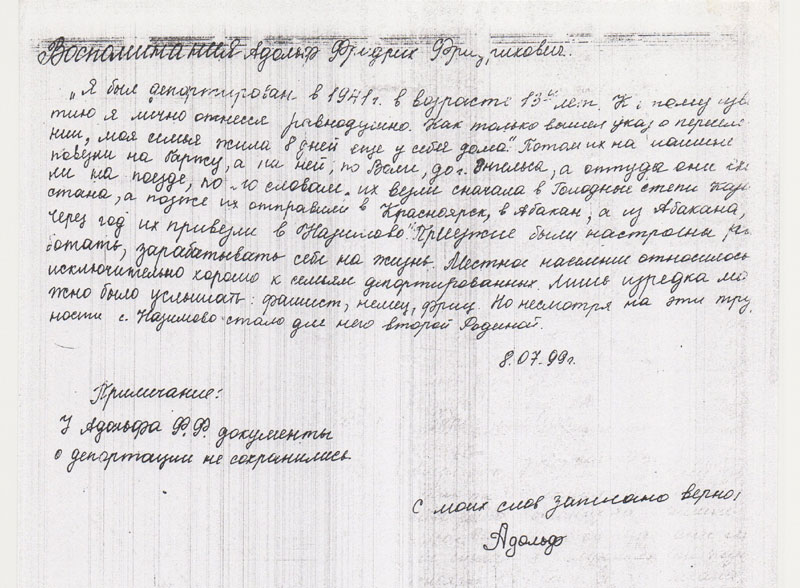 Воспоминания Адольф Фридрих Фридрихович.
„Я был депортирован в 1941г. в возрасте 13ти лет. К этому
тию я лично отнесся равнодушно. Как только вышел указ о пересел
нии, моя семья жила 8 дней еще у себя дома." Потом их на машине
повезли на баржу, а на ней, по Волге, до г. Энгельса, а оттуда они
ли на поезде, по его словам „их везли сначала в Голодные степи
стана, а позже их отправили в Красноярск, в Абакан, а из Абакана,
через год их привезли в Назимово." Приезжие были настроены
ботать, зарабатывать себе на жизнь. Местное население относилось
исключительно хорошо к семьям депортированных. Лишь изредка мо
жно было услышать: фашист, немец, фриц. Но несмотря на эти тру
ности с. Назимово стало для него второй Родиной.
8.07.99г.
Примечание:
У Адольфа Ф.Ф. документы
о депортации не сохранились
С моих слов записано верно:
Адольф